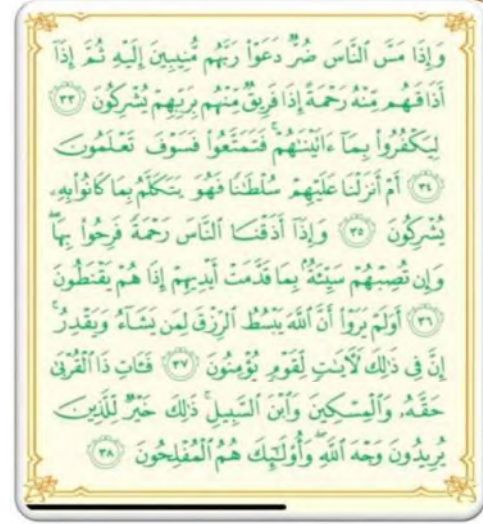 وَإِذَا مَسَّ ٱلنَّاسَ ضُرٌّ دَعَوْا۟ رَبَّهُم مُّنِيبِينَ إِلَيْهِ ثُمَّ إِذَآ
أَذَاقَهُم مِّنْهُ رَحْمَةً إِذَا فَرِيقٌ مِّنْهُم بِرَبِّهِمْ يُشْرِكُونَ ٣٣
لِيَكْفُرُوا۟ بِمَآ ءَاتَيْنَٰهُمْ ۚ فَتَمَتَّعُوا۟ فَسَوْفَ تَعْلَمُونَ
٣٤ أَمْ أَنزَلْنَا عَلَيْهِمْ سُلْطَٰنًا فَهُوَ يَتَكَلَّمُ بِمَا كَانُوا۟ بِهِۦ
يُشْرِكُونَ ٣٥ وَإِذَآ أَذَقْنَا ٱلنَّاسَ رَحْمَةً فَرِحُوا۟ بِهَا ۖ
وَإِن تُصِبْهُمْ سَيِّئَةٌۢ بِمَا قَدَّمَتْ أَيْدِيهِمْ إِذَا هُمْ يَقْنَطُونَ
٣٦ أَوَلَمْ يَرَوْا۟ أَنَّ ٱللَّهَ يَبْسُطُ ٱلرِّزْقَ لِمَن يَشَآءُ وَيَقْدِرُ ۚ
إِنَّ فِى ذَٰلِكَ لَـَٔايَٰتٍ لِّقَوْمٍ يُؤْمِنُونَ ٣٧ فَـَٔاتِ ذَا ٱلْقُرْبَىٰ
حَقَّهُۥ وَٱلْمِسْكِينَ وَٱبْنَ ٱلسَّبِيلِ ۚ ذَٰلِكَ خَيْرٌ لِّلَّذِينَ
يُرِيدُونَ وَجْهَ ٱللَّهِ ۖ وَأُو۟لَٰٓئِكَ هُمُ ٱلْمُفْلِحُونَ ٣٨